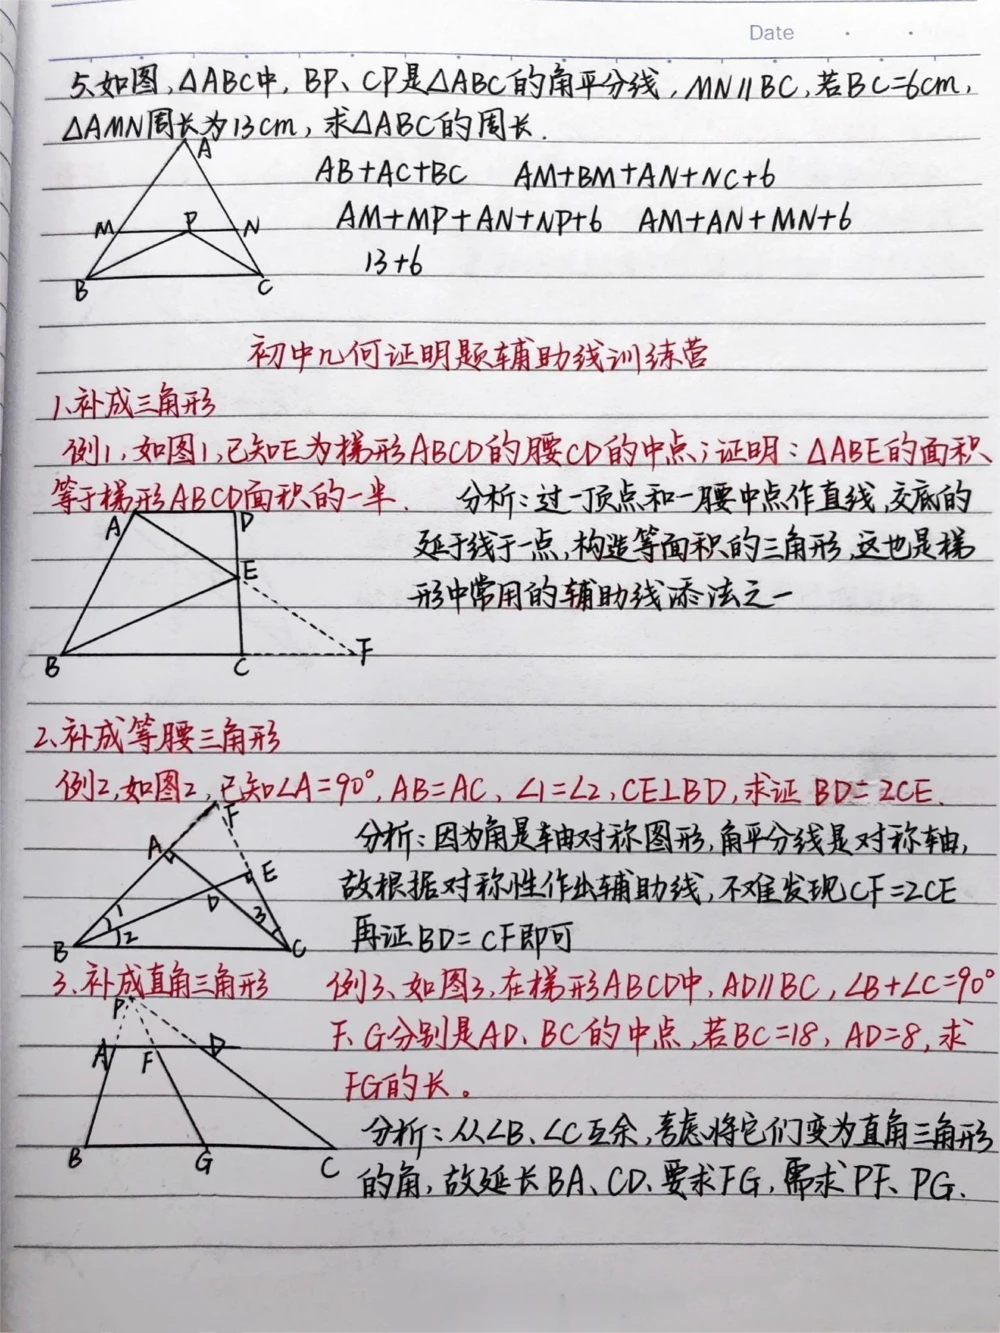 Date
5、如图,△ABC中,BP、CP是△ABC的角平分线,MN∥BC,若BC=6cm,
△AMN周长为13cm,求△ABC的周长.
A
AB+AC+BC AM+BM+AN+NC+6
M P N AM+MP+AN+NP+6 AM+AN+MN+6
13+6
B C
初中几何证明题辅助线训练营
1、补成三角形
例1,如图1,已知E为梯形ABCD的腰CD的中点;证明:△ABE的面积
等于梯形ABCD面积的一半. 分析:过一顶点和一腰中点作直线,交底的
A D
延于线于一点,构造等面积的三角形,这也是梯
E
形中常用的辅助线添法之一
B C F
2、补成等腰三角形
例2,如图2,已知∠A=90°,AB=AC、∠1=∠2,CE⊥BD,求证BD=2CE.
F
分析:因为角是轴对称图形,角平分线是对称轴,
A
E
故根据对称性作出辅助线,不难发现CF=2CE
D
1 3
2
再证BD=CF即可
B C
3、补成直角三角形 例3、如图3,在梯形ABCD中,AD∥BC,∠B+∠C=90°
P
F、G分别是AD、BC的中点,若BC=18,AD=8,求
A F D
FG的长。
分析:从∠B、∠C互余,考虑将它们变为直角三角形
B G C
的角,故延长BA、CD、要求FG,需求PF、PG.